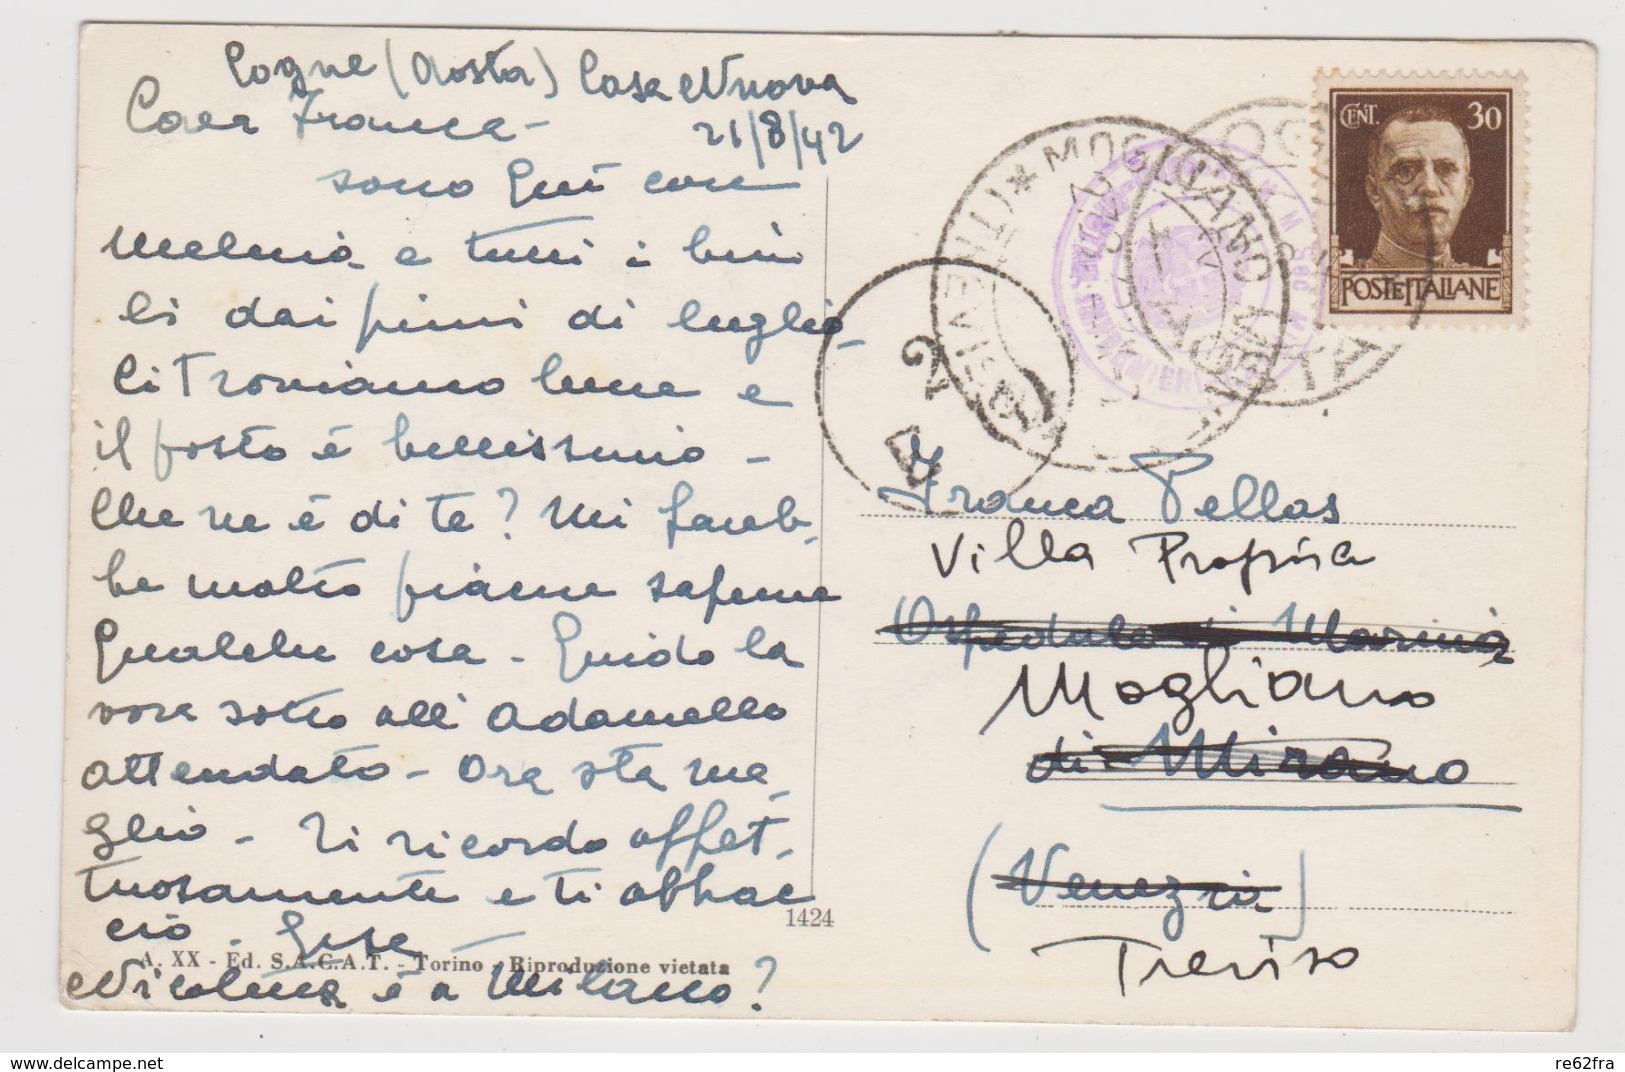 Cogne (Aosta) Casa Nuova
21/8/42
Cara Franca -
sono qui con
Melania e tutti i bim
bi dai primi di luglio.
Ci troviamo bene e
il posto è bellissimo -
Che ne è di te? Mi fareb-
be molto piacere saperne
qualche cosa - Guido la
vora sotto all'Adamello
attendato - Ora sta me
glio - Ti ricordo affet-
tuosamente e ti abbrac
cio -
Nicoletta è a Milano?
A. XX - Ed. S.A.C.A.T. - Torino - Riproduzione vietata
1424
CENT. 30
POSTE ITALIANE
MOGLIANO VENETO
(TREVISO)
AOSTA
2
A
Franca Pellas
Villa Propsica
Ospedale di Marina
Mogliano
di Mirano
(Venezia)
Treviso
delcampe.net
re62fra